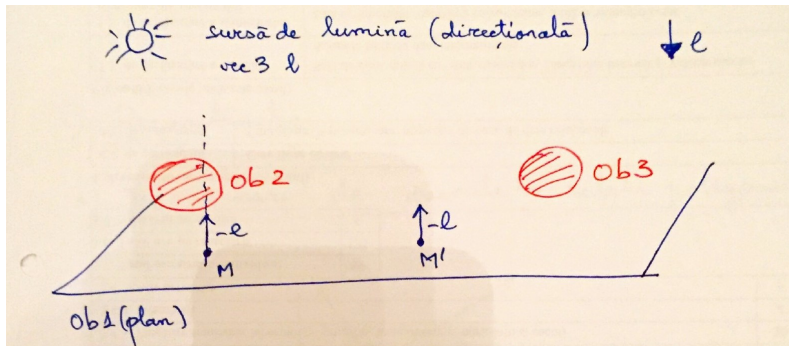 sursă de lumină (direcțională) l
vec3 l
ob2
ob3
-l
-l
M
M'
ob1(plan)